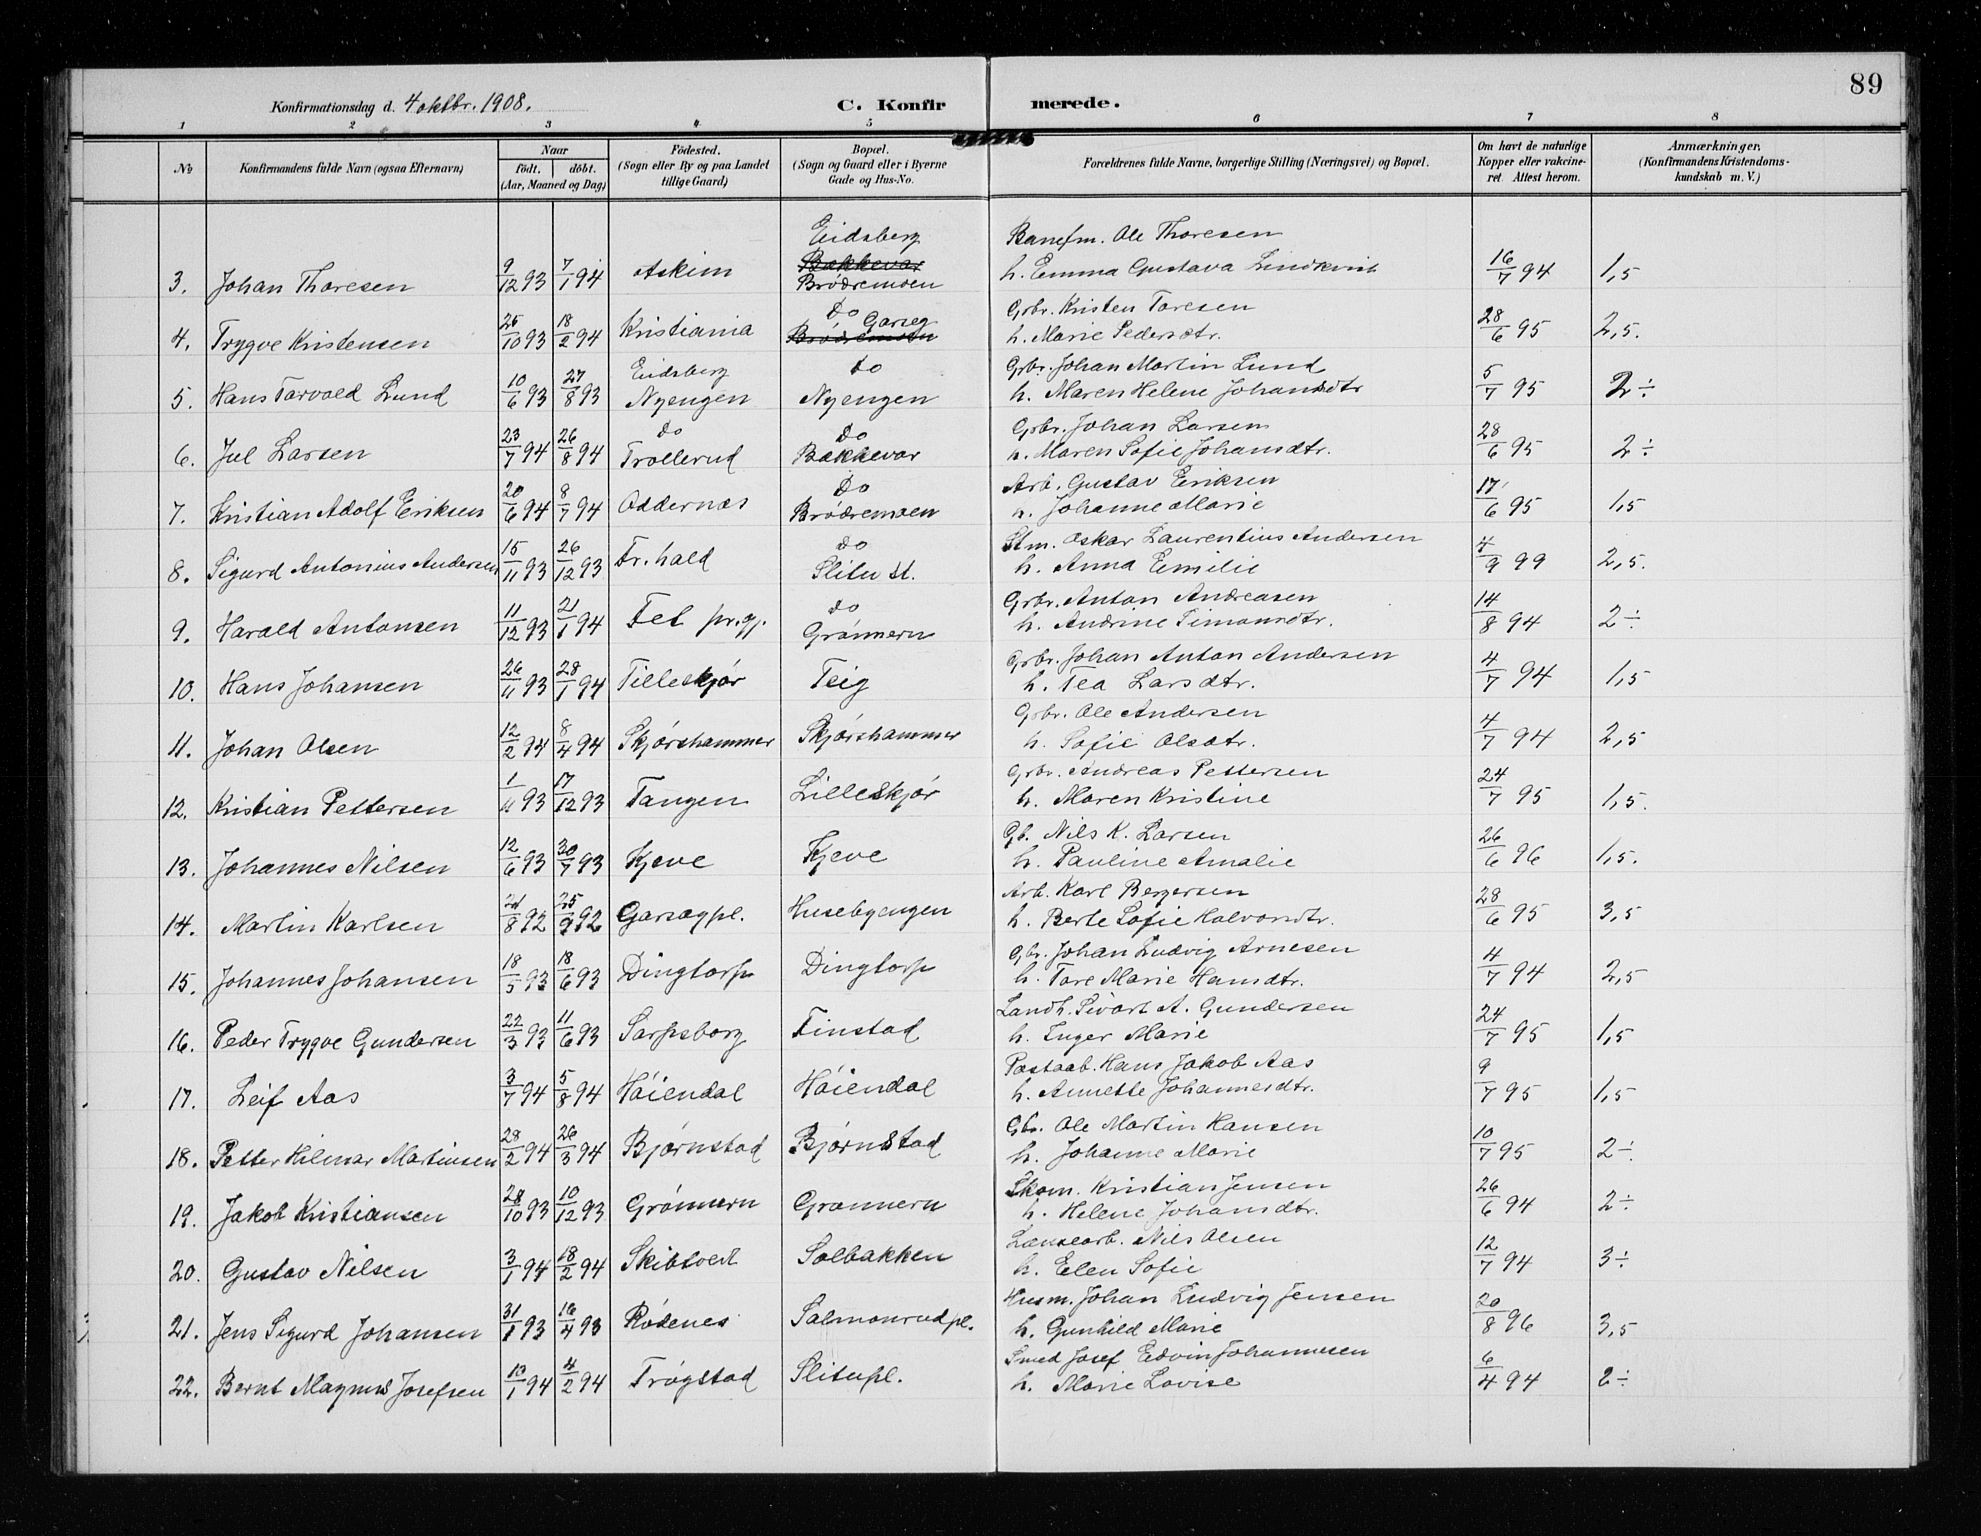 89
Konfirmationsdag d. 4 oktbr. 1908. C. Konfirmerede.
1 2 3 4 5 6 7 8
No Konfirmandens fulde Navn (ogsaa Efternavn) Naar født. døbt. (Aar, Maaned og Dag) Födested. (Sogn eller By og paa Landet tillige Gaard) Bopæl. (Sogn og Gaard eller i Byerne Gade og Hus-No. Forældrenes fulde Navne, borgerlige Stilling (Næringsvei) og Bopæl. Om havt de naturlige Kopper eller vakcineret. Attest herom. Anmærkninger. (Konfirmandens Kristendomskundskab m. V.)
Eidsberg Banefm. Ole Thoresen
3. Johan Thoresen 9/12 93 7/1 94 Askim Bakkevar Brödremoen h. Emma Gustava Lindkvist 16/7 94 1,5
Do Garseg Grbr. Kristen Toresen
4. Trygve Kristensen 25/10 93 18/2 94 Kristiania Brödremoen h. Marie Pedersdtr. 28/6 95 2,5.
Eidsberg do Grbr. Johan Martin Lund
5. Hans Torvald Lund 10/6 93 27/8 93 Nyengen Nyengen h. Maren Helene Johansdtr 5/7 95 2 ÷
do Do Grbr. Johan Larsen
6. Jul Larsen 23/7 94 26/8 94 Trollerud Bakkevar h. Maren Sofie Johansdtr. 28/6 95 2 ÷
Do Arb. Gustav Eriksen
7. Kristian Adolf Eriksen 20/6 94 8/7 94 Oddernæs Brödremoen h. Johanne Marie 17/6 95 1,5
do Stm. Oskar Laurentius Andersen
8. Sigurd Antonius Andersen 15/11 93 26/12 93 Fr.hald Slitu st. h. Anna Emilie 4/9 99 2,5.
do Grbr. Anton Andreasen
9. Harald Antonsen 11/12 93 21/1 94 Fet pr.gj. Grönnern h. Andrine Simonsdtr. 14/8 94 2 ÷
Grbr. Johan Anton Andersen
10. Hans Johansen 26/11 93 28/1 94 Lilleskjör Teig h. Tea Larsdtr. 4/7 94 1,5
Grbr. Ole Andersen
11. Johan Olsen 12/2 94 8/4 94 Skjörshammer Skjörshammer h. Sofie Olsdtr. 4/7 94 2,5
Grbr. Andreas Pettersen
12. Kristian Pettersen 1/11 93 17/12 93 Tangen Lilleskjör h. Maren Kristine 24/7 95 1,5.
Gb. Nils K. Larsen
13. Johannes Nilsen 12/6 93 30/7 93 Kjeve Kjeve h. Pauline Amalie 26/6 96 1,5.
Arb. Karl Bergersen
14. Martin Karlsen 21/8 92 25/9 92 Garsegpl. Husebyengen h. Berte Sofie Halvorsdtr. 28/6 95 3,5
Gbr. Johan Ludvig Arnesen
15. Johannes Johansen 18/5 93 18/6 93 Dingtorp Dingtorp h. Tore Marie Hansdtr. 4/7 94 2,5
Landh. Sivart A. Gundersen
16. Peder Trygve Gundersen 22/3 93 11/6 93 Sarpsborg Finstad h. Inger Marie 24/7 95 1,5
Postaab. Hans Jakob Aas
17. Leif Aas 3/7 94 5/8 94 Höiendal Höiendal h. Annette Johannesdtr. 9/7 95 1,5
Gbr. Ole Martin Hansen
18. Petter Hilmar Martinsen 28/2 94 26/3 94 Bjørnstad Bjørnstad h. Johanne Marie 10/7 95 2 ÷
Skom. Kristian Jensen
19. Jakob Kristiansen 28/10 93 10/12 93 Grönnern Grønnern h. Helene Johansdtr. 26/6 94 2 ÷
Lænsearb. Nils Olsen
20. Gustav Nilsen 3/1 94 18/2 94 Skibtvedt Solbakken h. Elen Sofie 12/7 94 3 ÷
Husm. Johan Ludvig Jensen
21. Jens Sigurd Johansen 31/1 93 16/4 93 Rödenes Salmonrudpl. h. Gunhild Marie 20/8 96 3,5
Smed Josef Edvin Johannesen
22. Bernt Magnus Josefsen 13/1 94 4/2 94 Trøgstad Slitupl. h. Marie Lovise 6/4 94 2 ÷